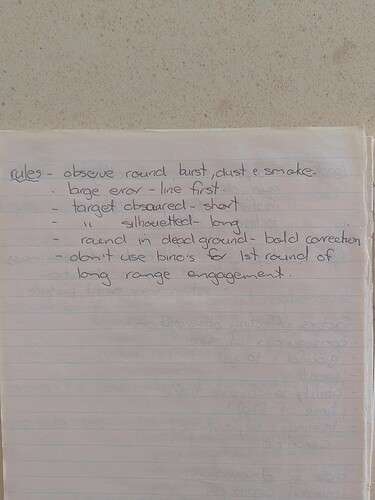 rules - observe round burst, dust & smoke.
- large error - line first
- target obscured - short
- " silhouetted - long
- round in dead ground - bold correction
- don't use bino's for 1st round of
long range engagement.